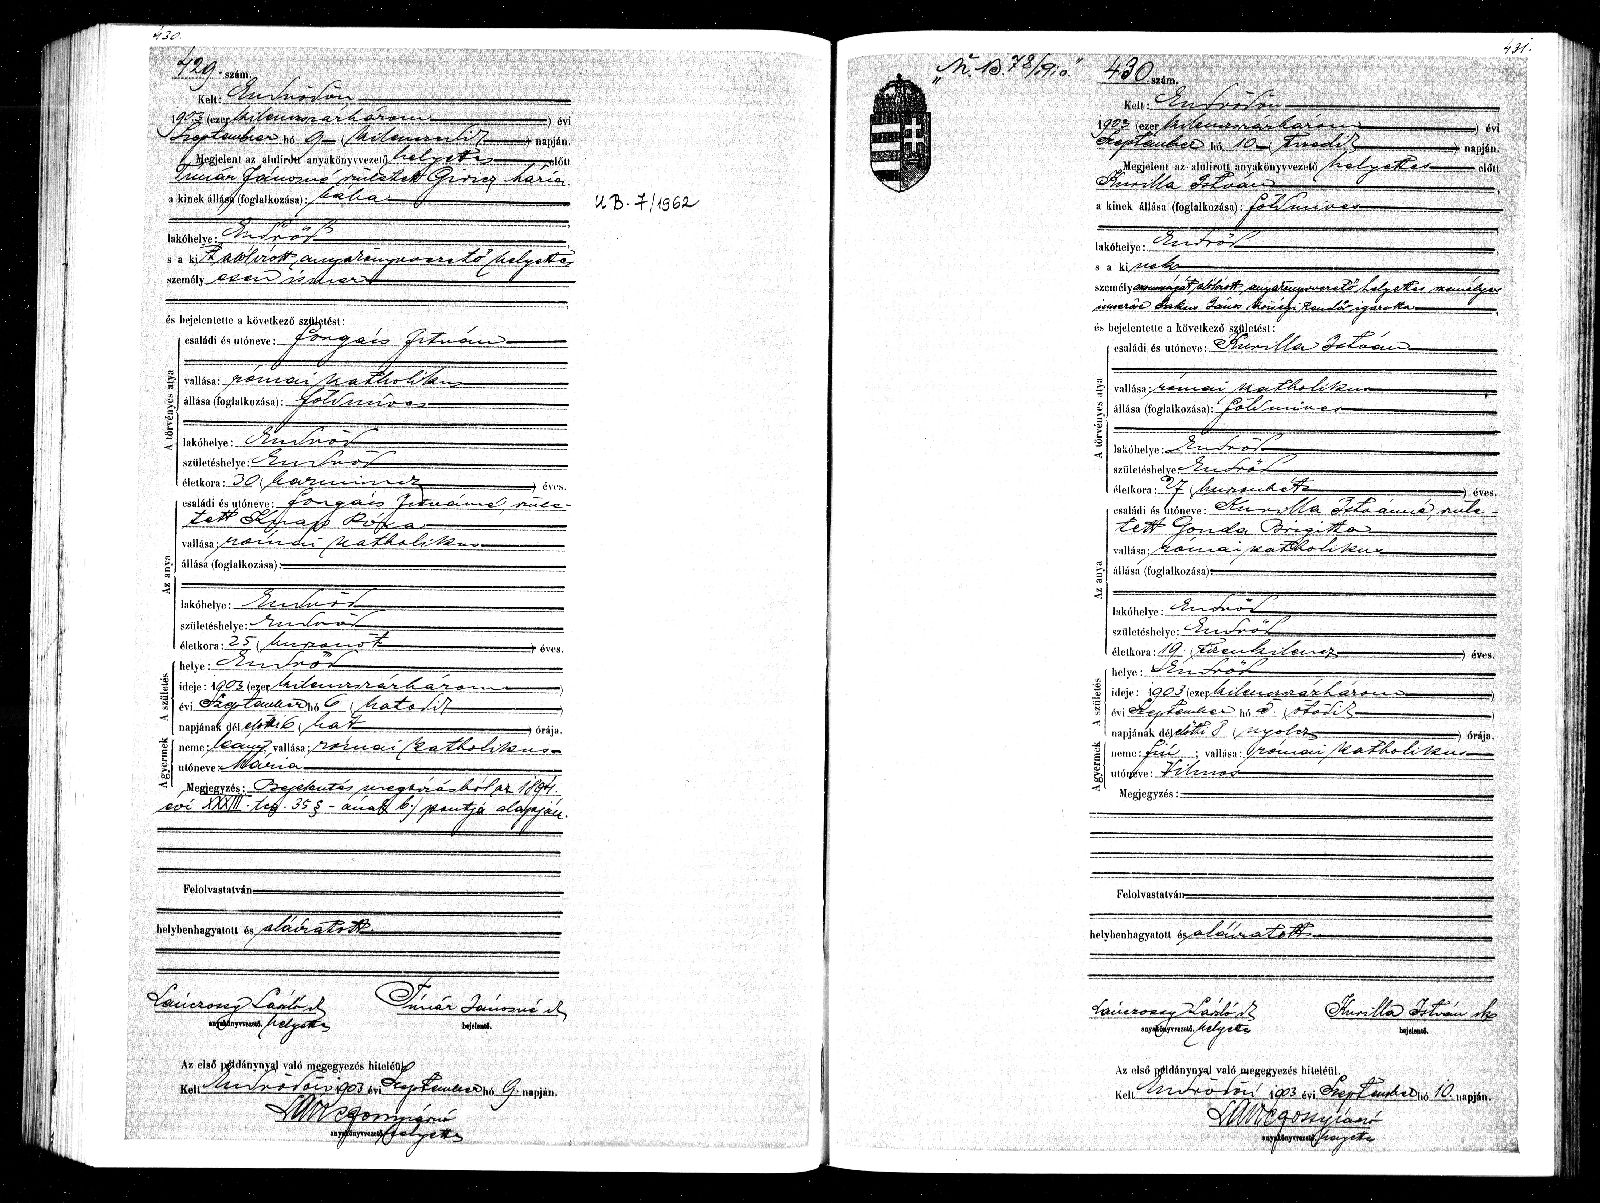 430.
429. szám.
Kelt: Endrődön
1903 (ezer kilenczszázhárom) évi
Szeptember hó 9 (kilenczedik) napján.
Megjelent az alulirott anyakönyvvezető helyettes előtt
Timár Jánosné született
a kinek állása (foglalkozása): bába
lakóhelye: Endrőd
s a kit alólirott anyakönyvvezető helyettes
személyesen ismer
és bejelentette a következő születést:
A törvényes atya
családi és utóneve: Forgács István
vallása: római katholikus
állása (foglalkozása): földmives
lakóhelye: Endrőd
születéshelye: Endrőd
életkora: 30 (harmincz) éves.
Az anya
családi és utóneve: Forgács Istvánné szüle-
tett Knapp Róza
vallása: római katholikus
állása (foglalkozása):
lakóhelye: Endrőd
születéshelye: Endrőd
életkora: 25 (huszonöt) éves.
A születés
helye: Endrőd
ideje: 1903 (ezer kilenczszázhárom)
évi Szeptember hó 6 (hatodik)
napjának dél előtti 6 (hat) órája.
A gyermek
neme: leány; vallása: római katholikus
utóneve: Mária
Megjegyzés: Bejelentés megbizásból az 1894.
évi XXXIII. tcz. 35 § - ának b.) pontja alapján.
Felolvastatván
helybenhagyatott és aláiratott
László
Timár Jánosné
anyakönyvvezető. helyettes
bejelentő.
Az első példánynyal való megegyezés hiteléül.
Kelt Endrődön 1903 évi Szeptember hó 9. napján.
anyakönyvvezető helyettes
U B. 7/1962
431.
430 szám.
Kelt: Endrődön
1903 (ezer kilenczszázhárom) évi
Szeptember hó 10 (tizedik) napján.
Megjelent az alulirott anyakönyvvezető helyettes előtt
Kurilla István
a kinek állása (foglalkozása): földmives
lakóhelye: Endrőd
s a kinek
személyazonosságát, alólirott, anyakönyvvezető helyettes személyesen
ismerőse János községi rendőr igazolta
és bejelentette a következő születést:
A törvényes atya
családi és utóneve: Kurilla István
vallása: római katholikus
állása (foglalkozása): földmives
lakóhelye: Endrőd
születéshelye Endrőd
életkora: 27 (huszonhét) éves.
Az anya
családi és utóneve: Kurilla Istvánné, szüle-
tett Gonda Brigitta
vallása: római katholikus
állása (foglalkozása):
lakóhelye: Endrőd
születéshelye: Endrőd
életkora: 19 (tizenkilencz) éves.
A születés
helye: Endrőd
ideje: 1903 (ezer kilenczszázhárom)
évi Szeptember hó 5. (ötödik)
napjának dél előtti 8 (nyolcz) órája.
A gyermek
neme: fiú; vallása: római katholikus
utóneve: Vilmos
Megjegyzés:
Felolvastatván
helybenhagyatott és aláiratott
László
Kurilla István sk
anyakönyvvezető. helyettes
bejelentő.
Az első példánynyal való megegyezés hiteléül.
Kelt Endrődön 1903 évi Szeptember hó 10. napján.
anyakönyvvezető helyettes